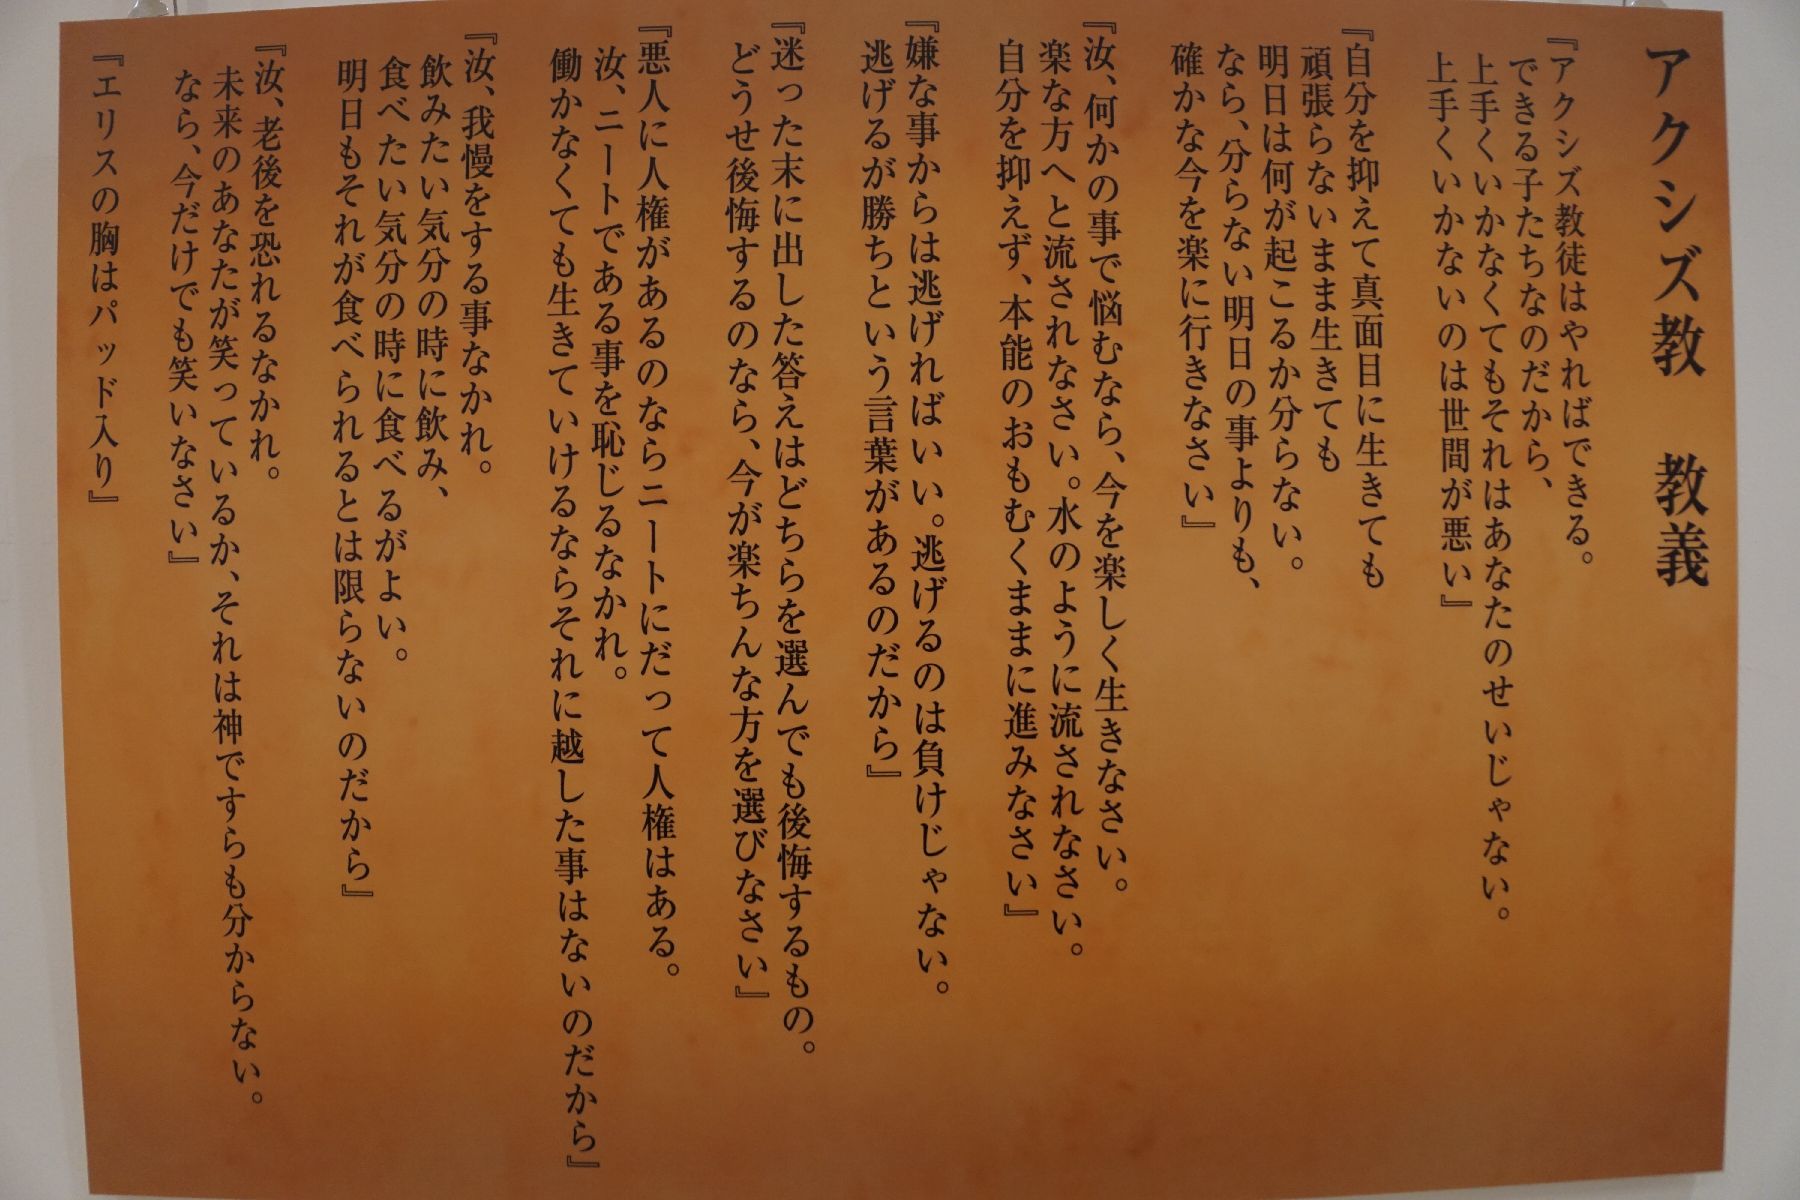 アクシズ教　教義
『アクシズ教徒はやればできる。
できる子たちなのだから、
上手くいかなくてもそれはあなたのせいじゃない。
上手くいかないのは世間が悪い』
『自分を抑えて真面目に生きても
頑張らないまま生きても
明日は何が起こるか分らない。
なら、分らない明日の事よりも、
確かな今を楽に行きなさい』
『汝、何かの事で悩むなら、今を楽しく生きなさい。
楽な方へと流されなさい。水のように流されなさい。
自分を抑えず、本能のおもむくままに進みなさい』
『嫌な事からは逃げればいい。逃げるのは負けじゃない。
逃げるが勝ちという言葉があるのだから』
『迷った末に出した答えはどちらを選んでも後悔するもの。
どうせ後悔するのなら、今が楽ちんな方を選びなさい』
『悪人に人権があるのならニートにだって人権はある。
汝、ニートである事を恥じるなかれ。
働かなくても生きていけるならそれに越した事はないのだから』
『汝、我慢をする事なかれ。
飲みたい気分の時に飲み、
食べたい気分の時に食べるがよい。
明日もそれが食べられるとは限らないのだから』
『汝、老後を恐れるなかれ。
未来のあなたが笑っているか、それは神ですらも分からない。
なら、今だけでも笑いなさい』
『エリスの胸はパッド入り』